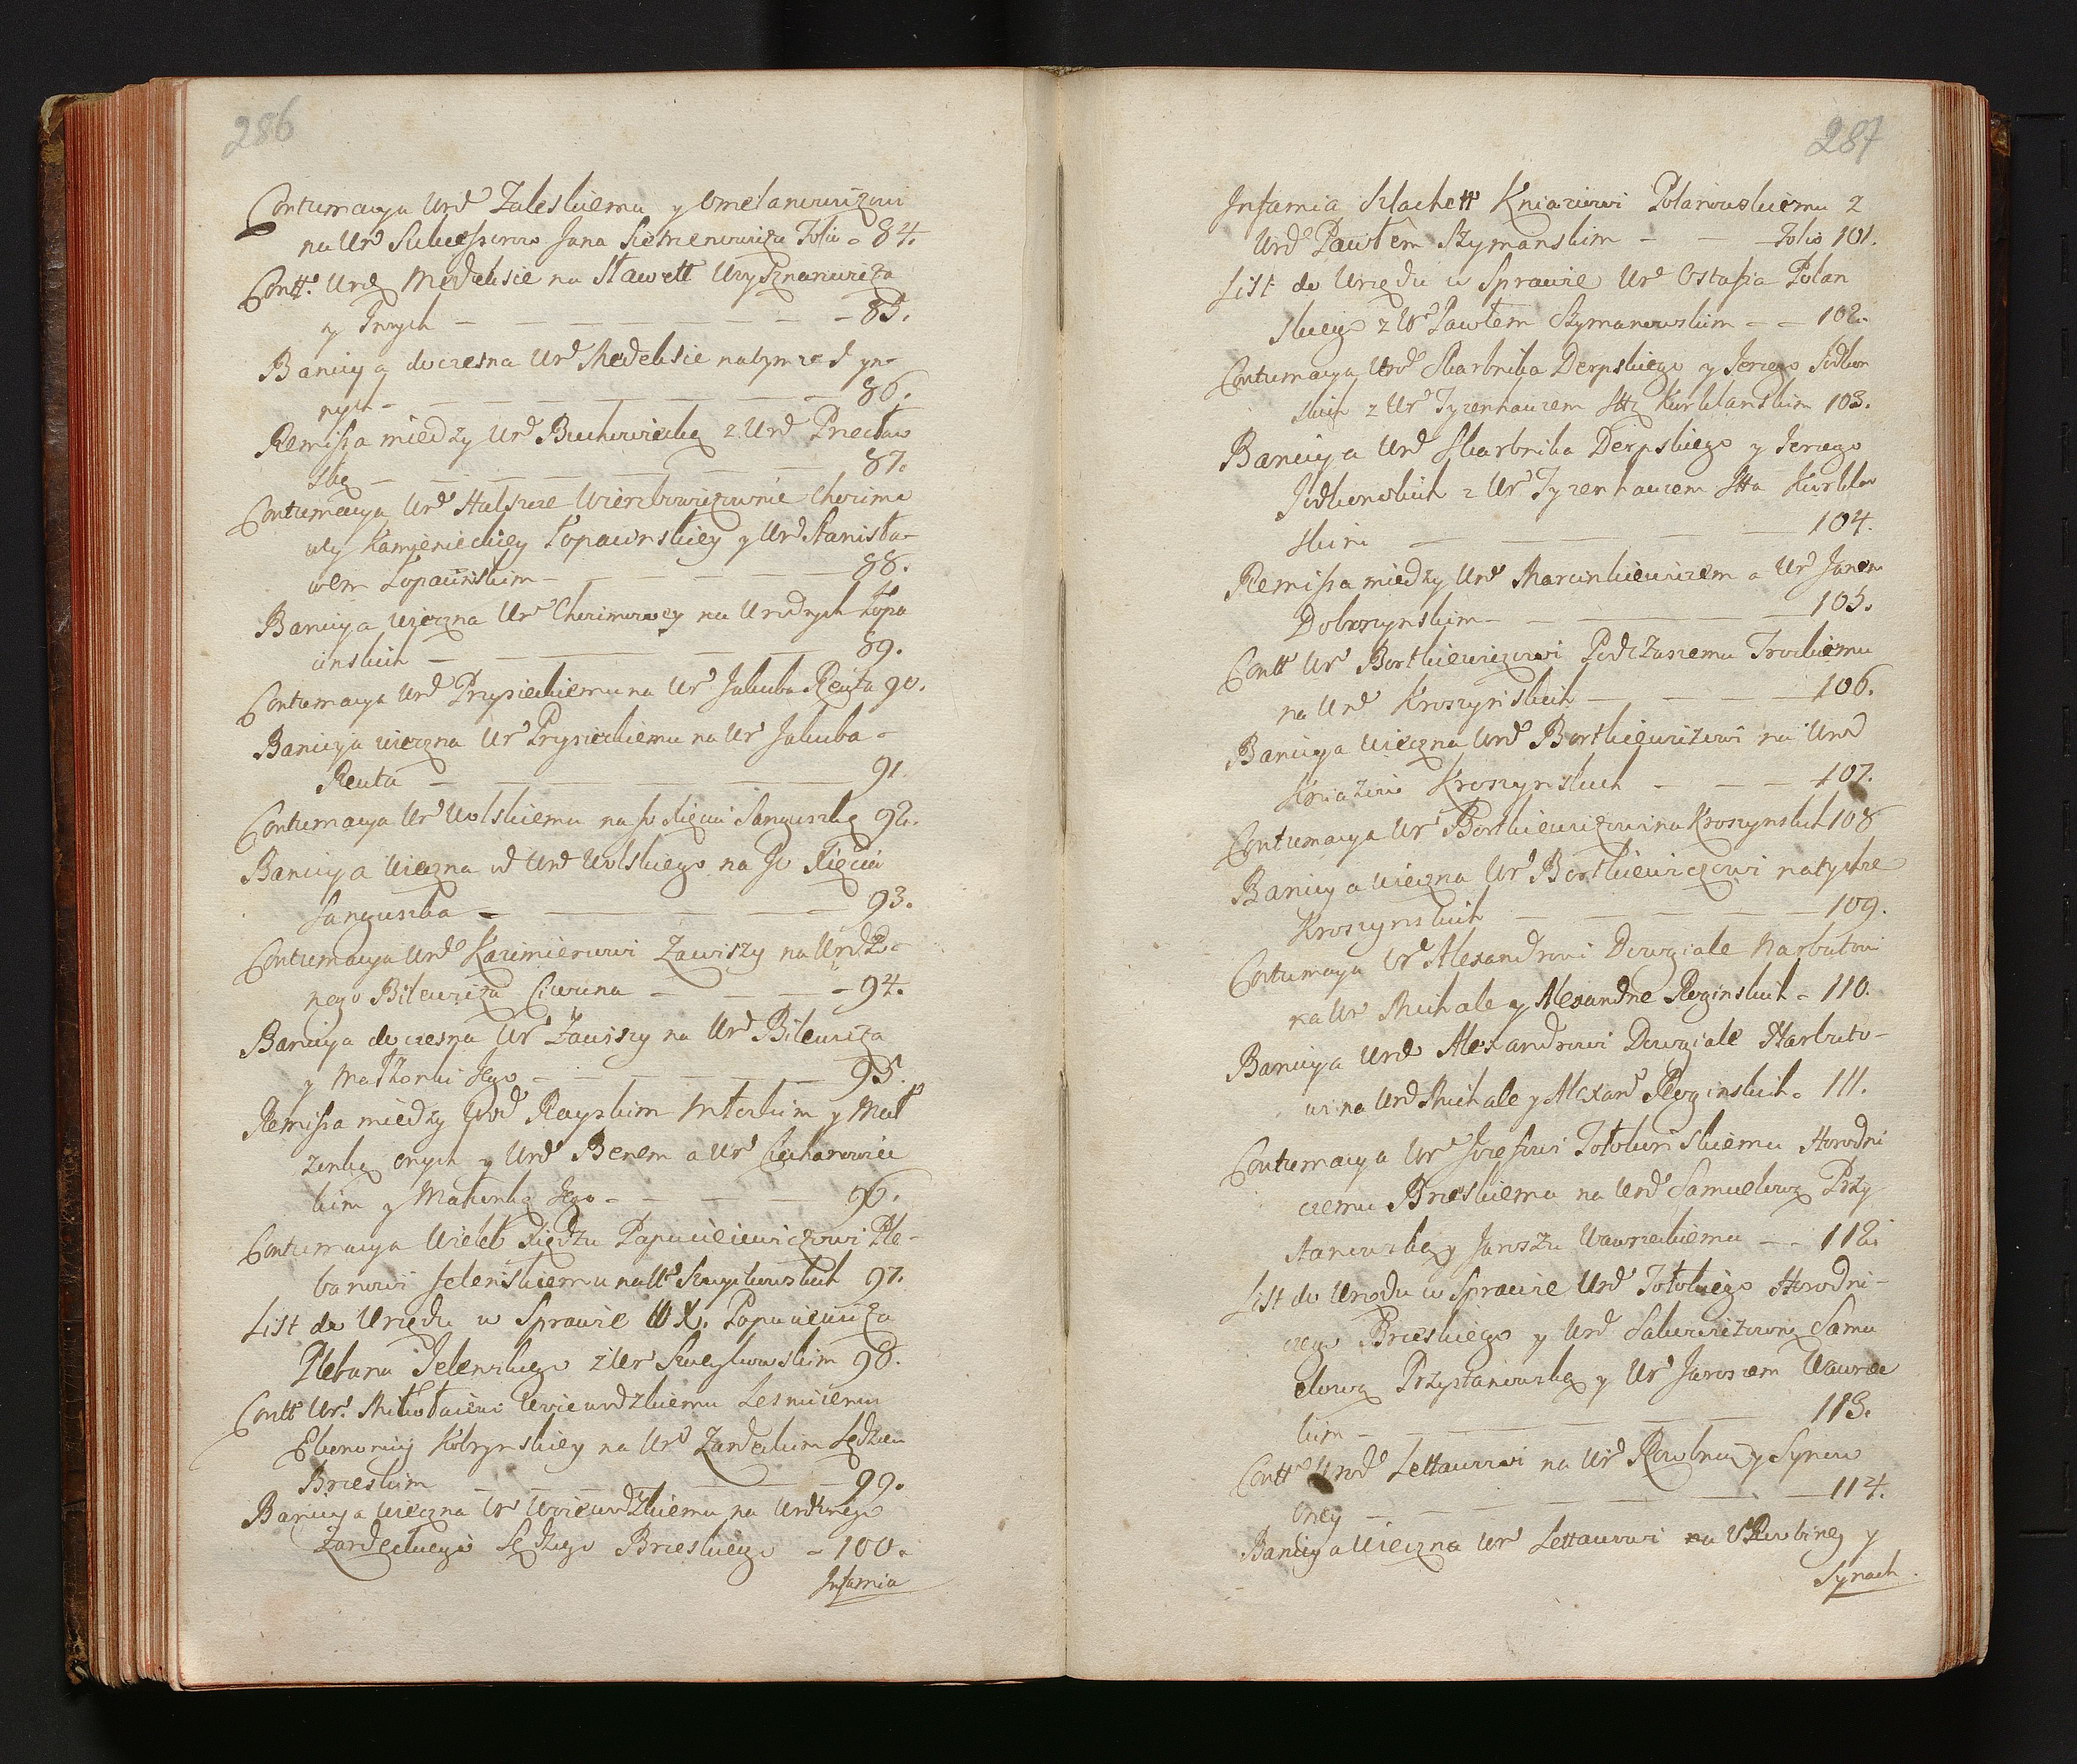 286
Contumacya Urd Zaleskiemu y Omelanowiczowi
na Ur Sukcessorow Jana Siemienowicza Folio - 84.
Contt. Urd Medeksie na Sławett Wysznarowicza
y Innych - 85.
Banicya doczesna Urd Medeksie na tymze y yn-
nych - 86.
Remissa między Urd Buchowiecką z Urd Przecław
ską - 87.
Contumacya Urd Halszce Wierzbowiczownie Chorimo
wey Kamienieckiey Łopacinskiey y Urd Stanisła-
wem Łopacinskim - 88.
Banicya wieczna Ur Chorimowey na Urodnych Łopa
cinskich - 89.
Contumacya Urd Przysieckiemu na Ur Jakuba Reuta 90.
Banicyja wieczna Ur Przysieckiemu na Ur Jakuba -
Reuta - 91.
Contumacya Ur Wolskiemu na Jo Xięcia Sanguszkę 92.
Banicya wieczna od Urd Wolskiego na Jo Xięcia
Sanguszka - 93.
Contumacya Urd Kazimierowi Zawiszy na Urdz-
nego Bilewicza Ciwuna - 94.
Banicya doczesna Ur Zawiszy na Urd Bilewicza
y Małżonki Jego - 95.
Remissa miedzy Urod Rayskim y Mał
żonką onych y Urd Benem a Ur Ciechanowiec
kim y Małżonką Jego - 96.
Contumacya Wieleb Xiędzu Papucieiewiczowi Ple-
banowi Jelenskiemu na Ur 97.
List do Urzędu w Sprawie W X. Papuciewicza
Plebana Jelenskiego z Ur 98.
Contt Ur. Mikołaiowi Woiewodzkiemu Lesniczemu
Ekonomij Kobrynskiey na Ur Zardeckim Sędziem
Brzeskim 99.
Banicya wieczna Ur Woiewodzkiemu na Urdznego
Zardeckiego Sędziego Brzeskiego - 100.
Infamia
287
Infamia Szlachett Kniaziowi Połanowskiemu z
Urd Pawłem Szymanskim - - Folio 101.
List do Urzędu w Sprawie Ur Ostafia Polan
skiego z Ur Pawłem Szymanowskim - - 102.
Contumacya Urod Skarbnika Derpskiego y Jerzego Jodkow
skich z Ur Tyzenhauzem Stt Kurklanskim 103.
Banicya Urd Skarbnika Derpskiego y Jerzego
Jodkowskich z Ur Tyzenhauzem Stta Kurklan
skim - 104.
Remissa między Urd Marcinkiewiczem a Ur Janem
Doboszynskim - 105.
Contt Ur Bortkiewiczowi Podczaszemu Trockiemu
na Urd Kroszynskich - 106.
Banicya wieczna Urd Bortkiewiczowi na Urd
Kniaziow Kroszynskich - 107.
Contumacya Ur Bortkiewiczowi na Kroszynskich 108
Banicya wieczna Ur Bortkiewiczowi na tychze
Kroszynskich - 109.
Contumacya Ur Alexandrowi Dowgiale Narbutowi
na Ur Michale y Alexandrze Roginskich - 110.
Banicya Urd Alexandrowi Dowgiale Narbuto-
wi na Urd Michale y Alexand Roginskich. 111.
Contumacya Ur Jozefowi Tołokonskiemu Horodni
czemu Brzeskiemu na Urd Samuelową Przy-
stanowską y Jaroszu Wawrzeckiemu - - 112.
List do Urzędu w Sprawie Urd Tołockiego Horodni-
czego Brzeskiego y Urd Samu
elową Przystanowską y Ur Jaroszem Wawrzec
kim - 113.
Contt Urod Lettawowi na Ur Rowbną y Synow
Oney - 114.
Banicya wieczna Ur Lettawowi na U Rowbney y
Synach.